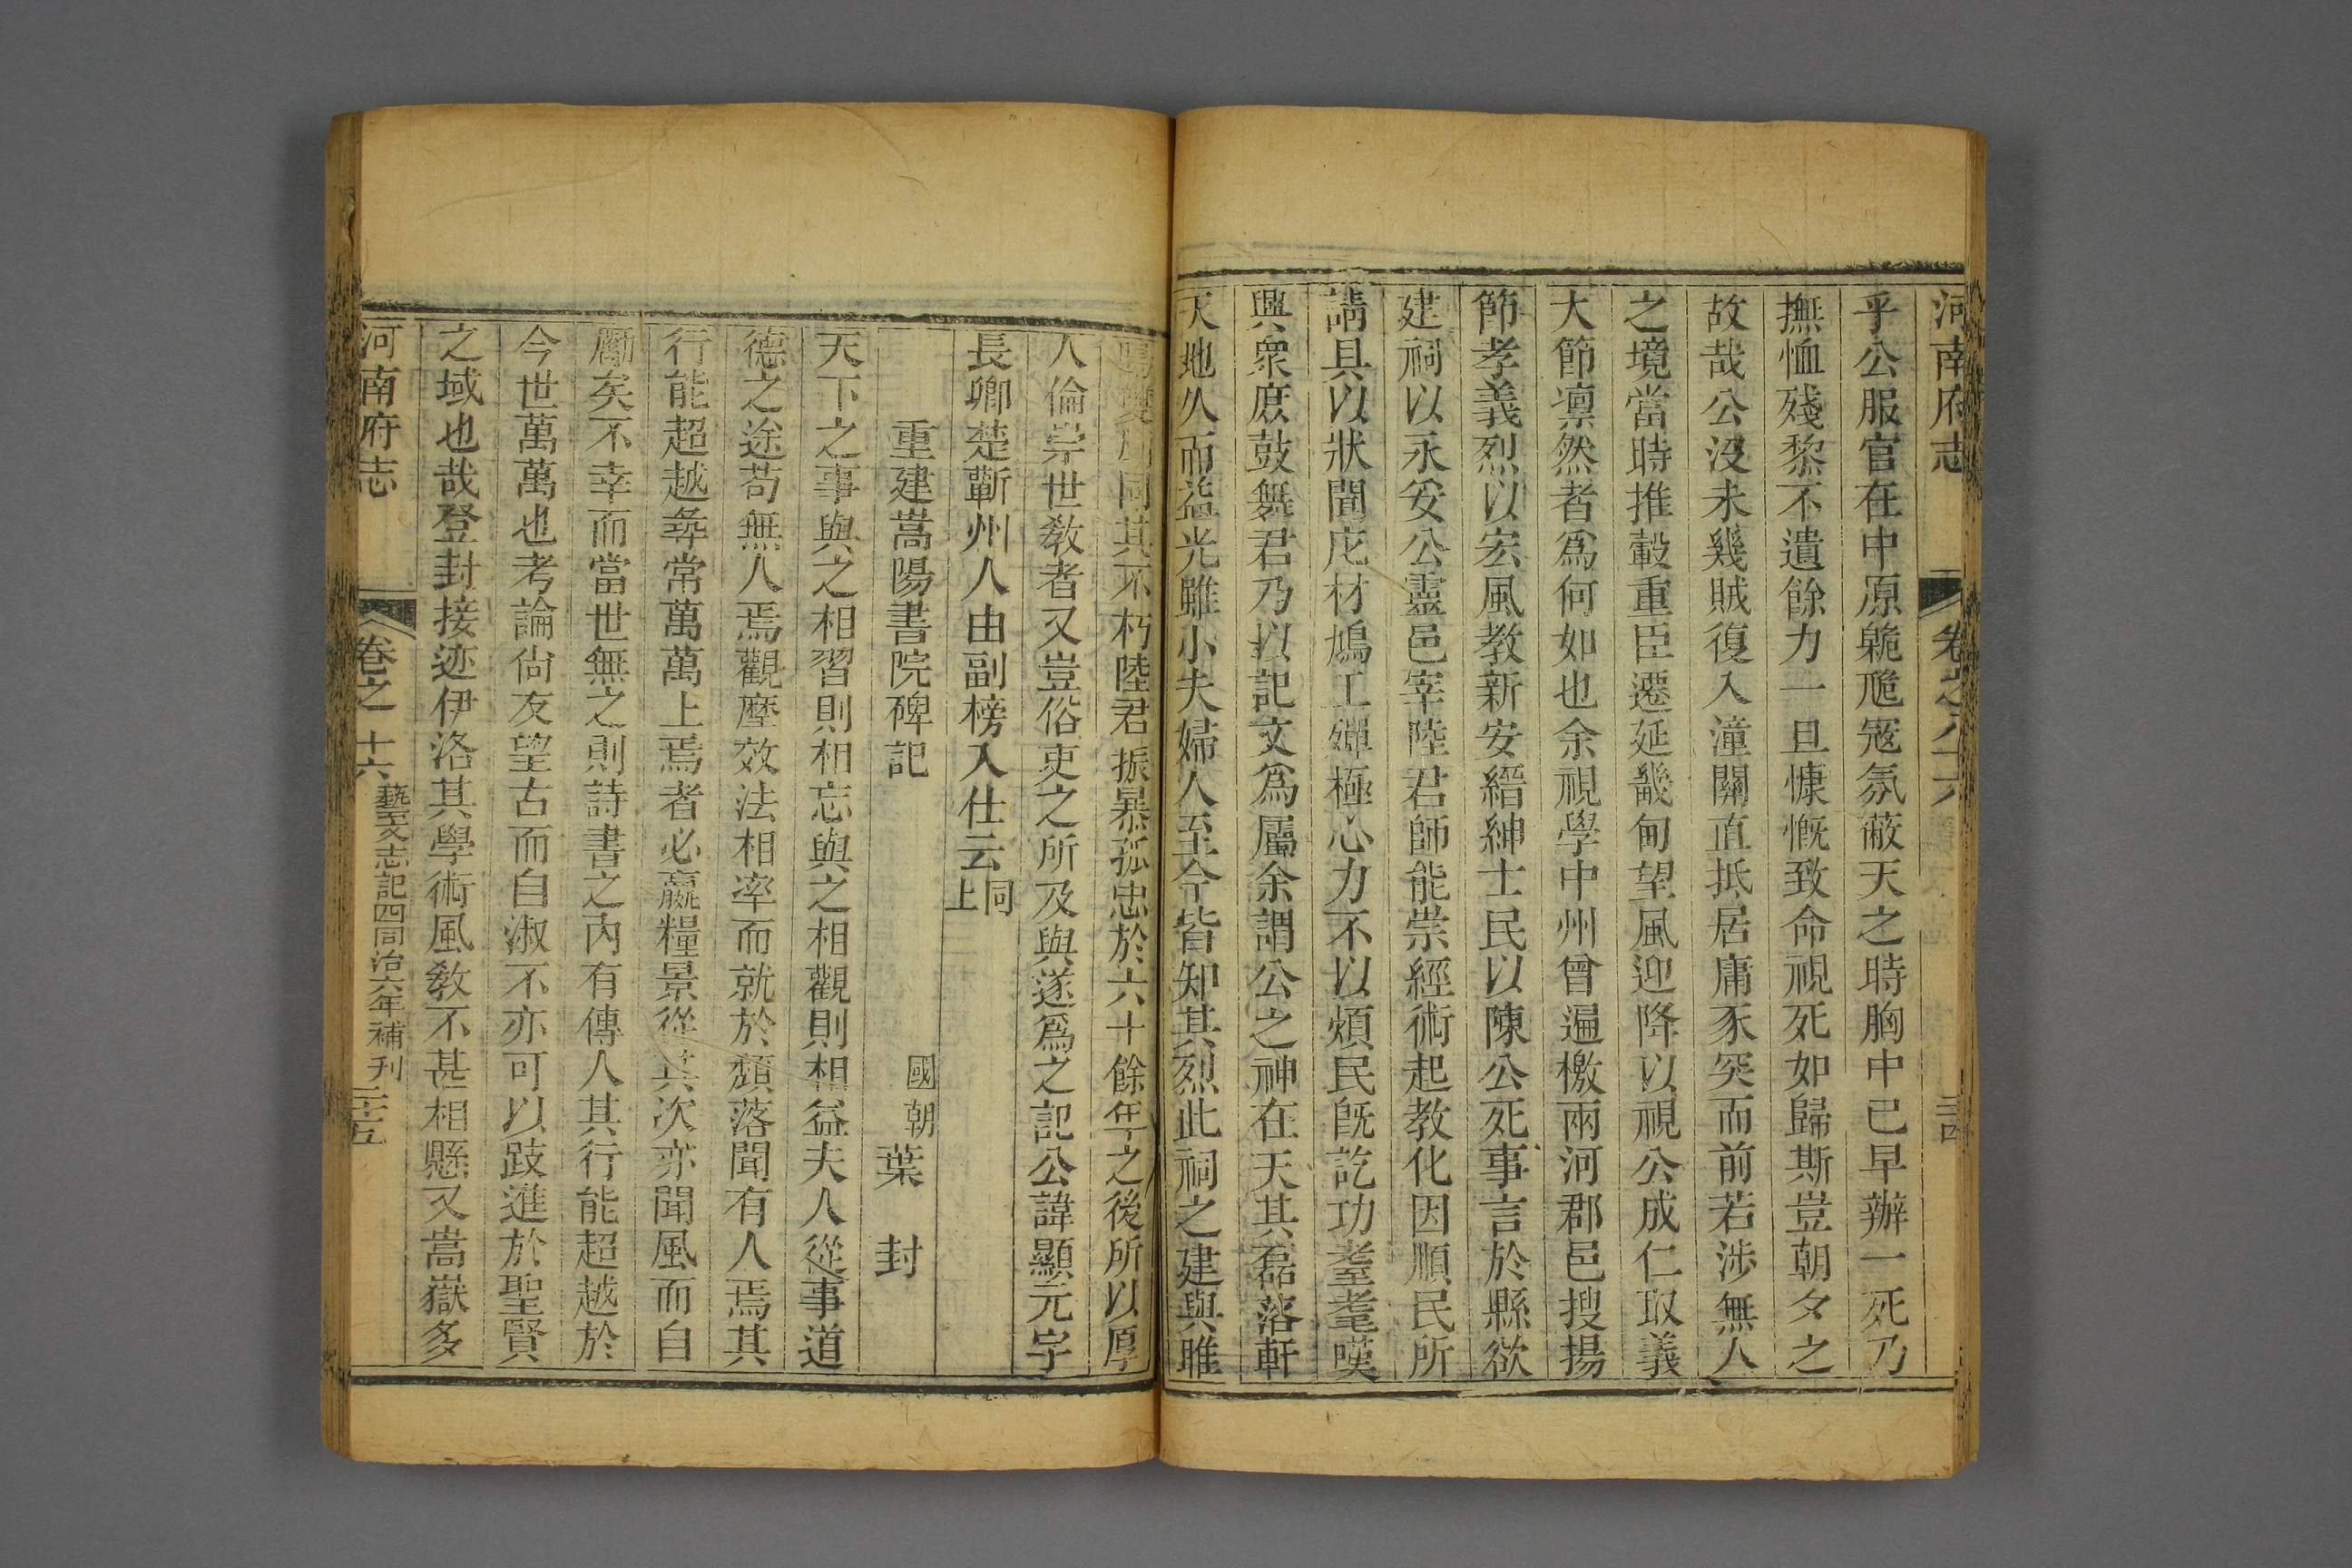 河南府志
卷之八十六
三十四
乎公服官在中原臲卼冦氛蔽天之時胸中已早辦一死乃
撫恤殘黎不遺餘力一旦慷慨致命視死如歸斯豈朝夕之
故哉公沒未幾賊復入潼關直抵居庸豕突而前若涉無人
之境當時推轂重臣遷延畿甸望風迎降以視公成仁取義
大節凛然者爲何如也余視學中州曾遍檄兩河郡邑搜揚
節孝義烈以宏風教新安縉紳士民以陳公死事言於縣欲
建祠以永妥公靈邑宰陸君師能崇經術起教化因順民所
請具以狀聞庀材鳩工殫極心力不以煩民旣訖功耋耄嘆
興衆庶鼓舞君乃以記文爲屬余謂公之神在天其磊落軒
天地久而益光雖小夫婦人至今皆知其烈此祠之建與雎
同其不朽陸君振暴孤忠於六十餘年之後所以厚
人倫崇世敎者又豈俗吏之所及與遂爲之記公諱顯元字
長卿楚蘄州人由副榜入仕云同上
重建嵩陽書院碑記
國朝葉封
天下之事與之相習則相忘與之相觀則相益夫人從事道
德之途苟無人焉觀摩效法相率而就於頹落聞有人焉其
行能超越尋常萬萬上焉者必贏糧景從其次亦聞風而自
勵矣不幸而當世無之則詩書之內有傳人其行能超越於
今世萬萬也考論尙友望古而自淑不亦可以跂進於聖賢
之域也哉登封接迹伊洛其學術風敎不甚相懸又嵩嶽多
河南府志
卷之
十六
藝文志記四同治六年補刋
三十五